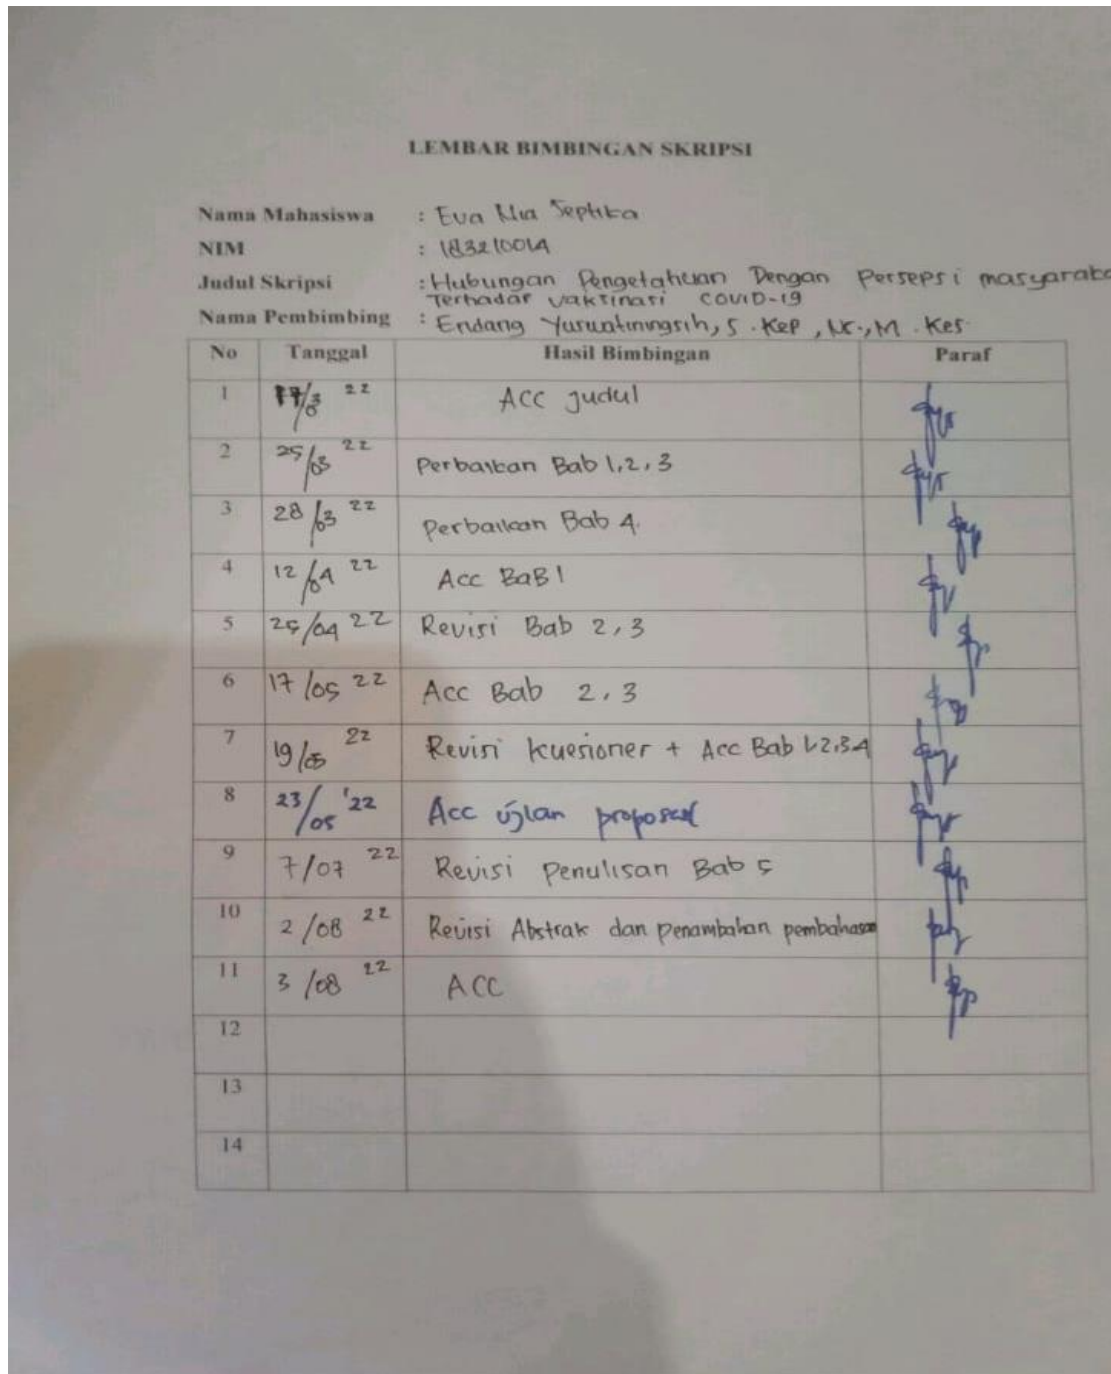 LEMBAR BIMBINGAN SKRIPSI
Nama Mahasiswa : Eva Nia Septika
NIM : 183210014
Judul Skripsi : Hubungan Pengetahuan Dengan Persepsi masyaraka
Terhadap vaksinasi COVID-19
Nama Pembimbing : Endang Yuswatiningsih, S.Kep, Ns., M.Kes.
No Tanggal Hasil Bimbingan Paraf
1 17/3 22 ACC Judul
2 25/03 22 Perbaikan Bab 1,2,3
3 28/03 22 Perbaikan Bab 4.
4 12/04 22 Acc BaB 1
5 25/04 22 Revisi Bab 2,3
6 17/05 22 Acc Bab 2,3
7 19/05 22 Revisi kuesioner + Acc Bab 1,2,3,4
8 23/05 '22 Acc ujian proposal
9 7/07 22 Revisi Penulisan Bab 5
10 2/08 22 Revisi Abstrak dan penambahan pembahasan
11 3/08 22 ACC
12
13
14